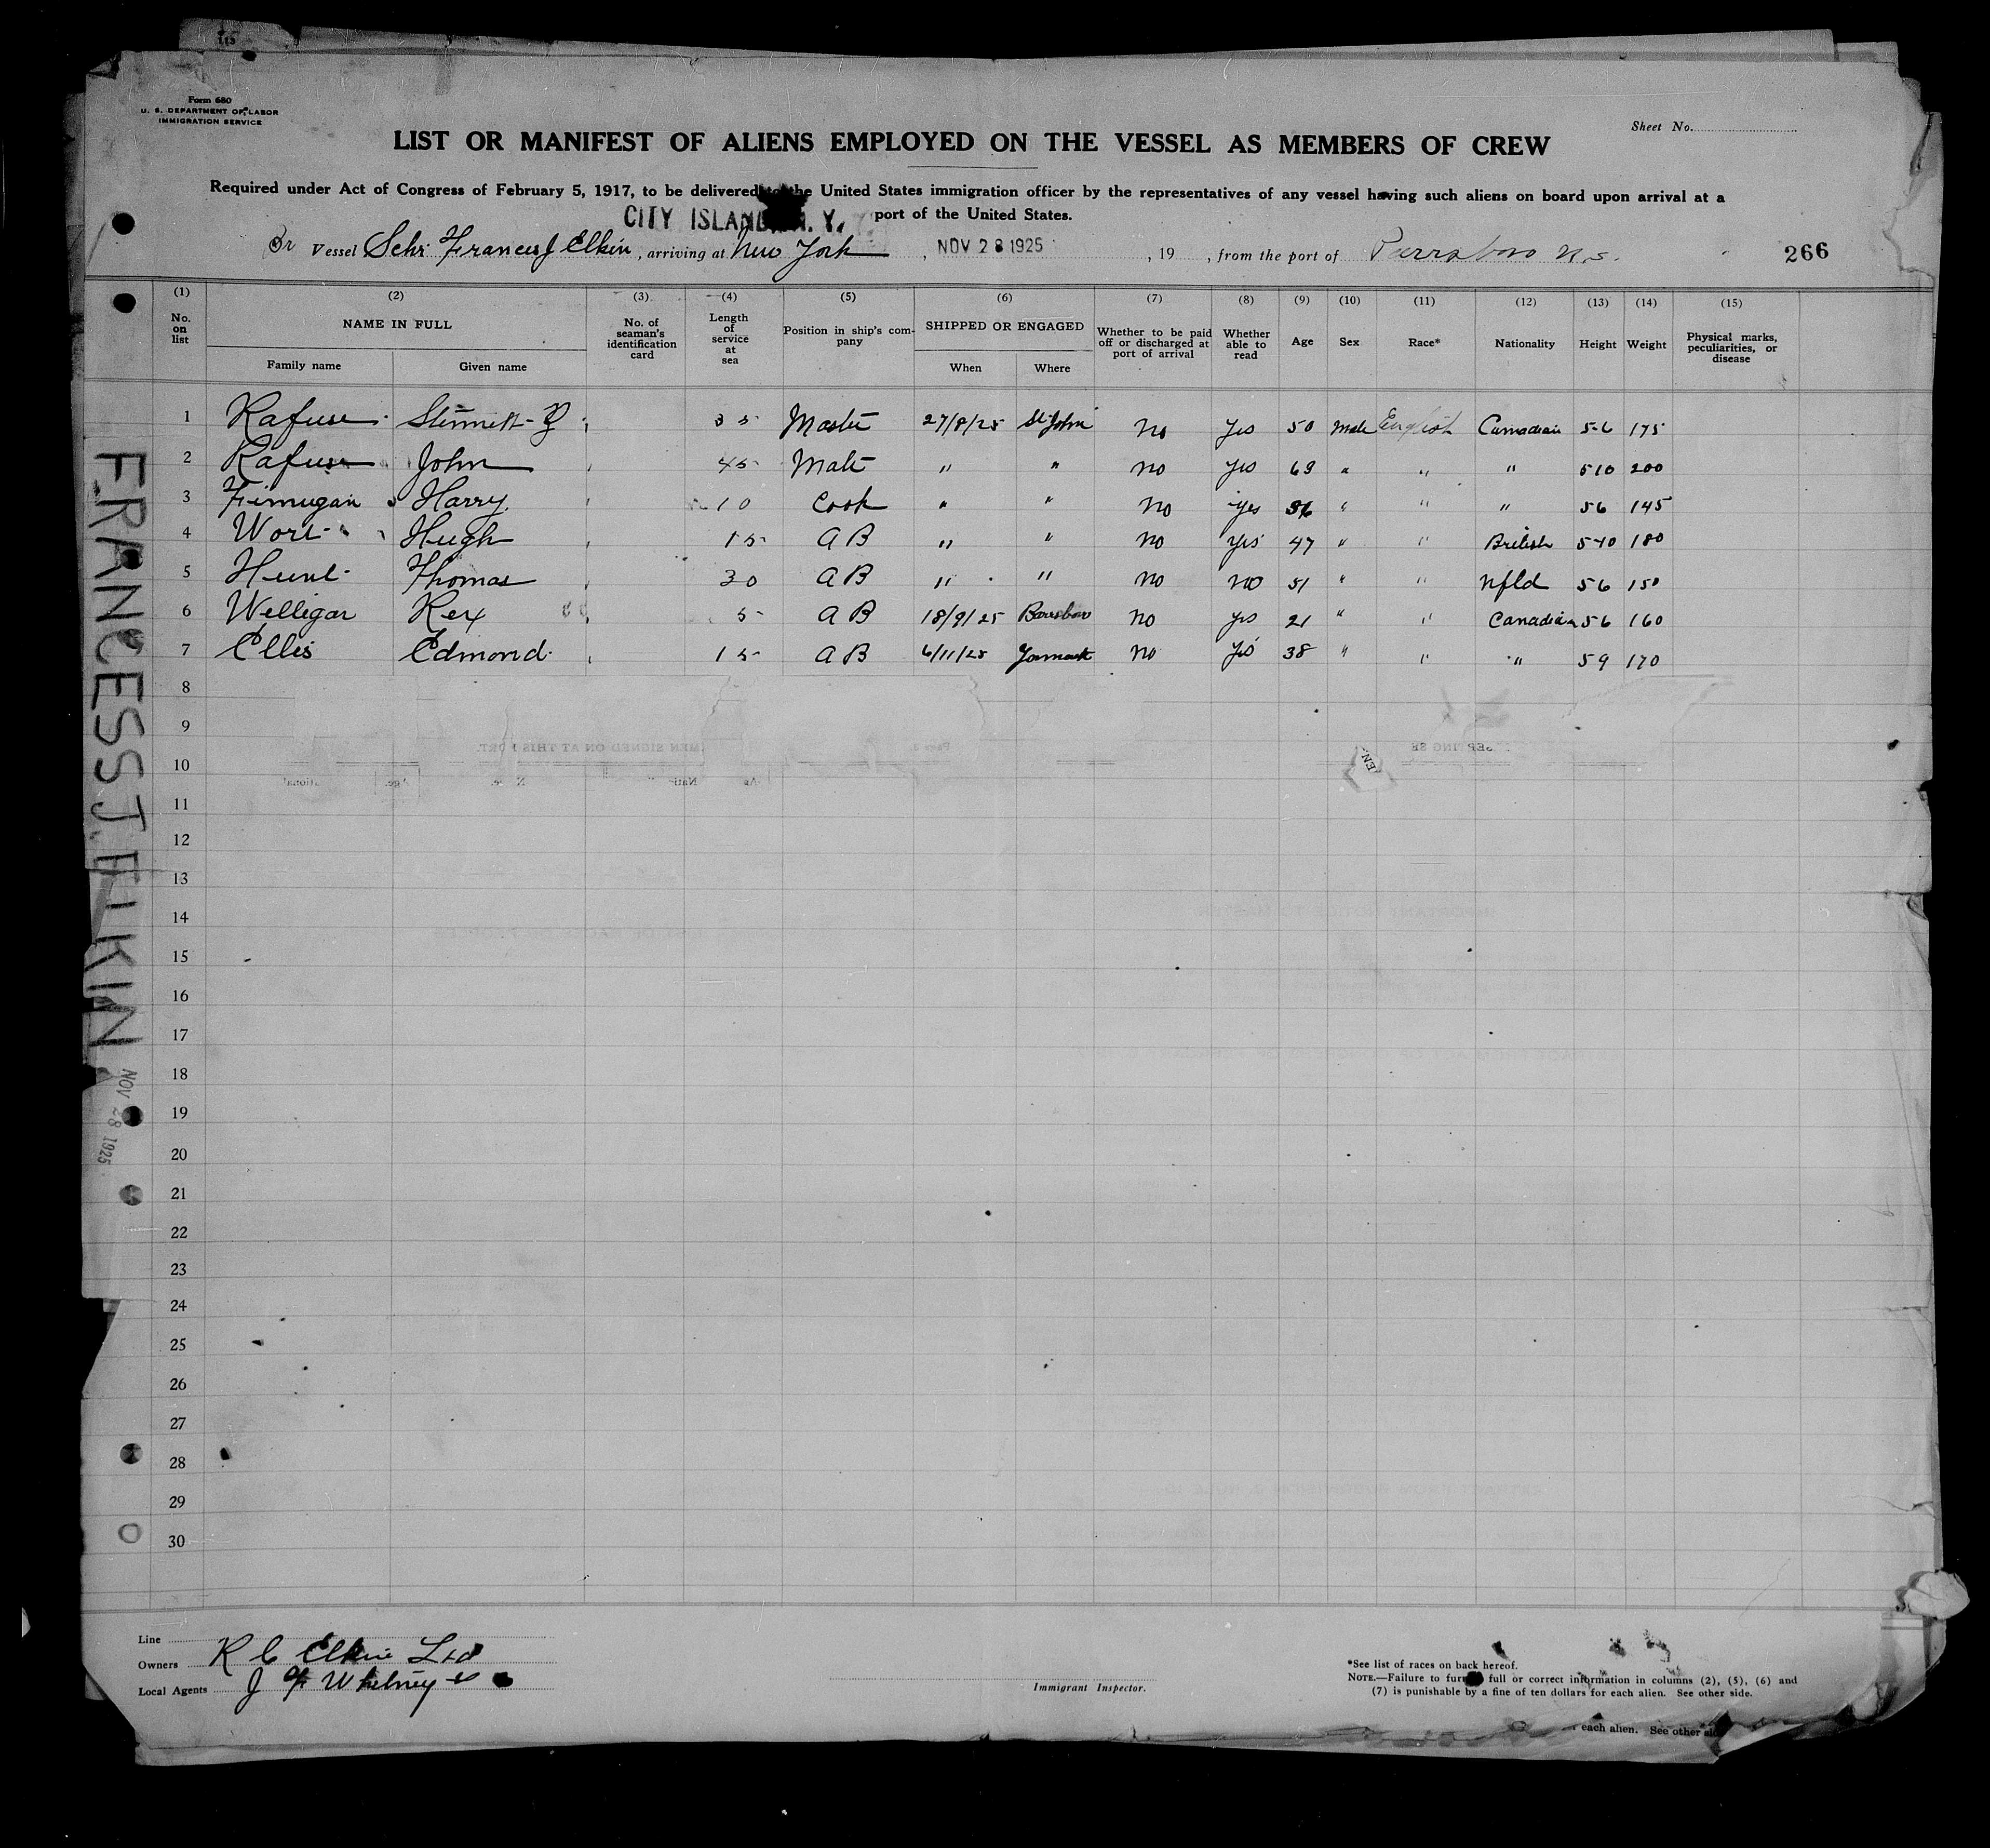 Form 680
U. S. DEPARTMENT OF LABOR
IMMIGRATION SERVICE
Sheet No.
LIST OR MANIFEST OF ALIENS EMPLOYED ON THE VESSEL AS MEMBERS OF CREW
Required under Act of Congress of February 5, 1917, to be delivered to the United States immigration officer by the representatives of any vessel having such aliens on board upon arrival at a
port of the United States.
CITY ISLAND N. Y.
Br Vessel Schr Frances J Elkin, arriving at New York, NOV 28 1925, 19, from the port of Parrsboro N.S. 266
(1) (2) (3) (4) (5) (6) (7) (8) (9) (10) (11) (12) (13) (14) (15)
No. on list NAME IN FULL No. of seaman's identification card Length of service at sea Position in ship's company SHIPPED OR ENGAGED Whether to be paid off or discharged at port of arrival Whether able to read Age Sex Race* Nationality Height Weight Physical marks, peculiarities, or disease
Family name Given name When Where
1 Rafuse 35 Master 27/8/25 St John No Yes 50 Male English Canadian 5-6 175
2 Rafuse John 45 Mate " " No Yes 69 " " " 510 200
3 Harry 10 Cook " " No Yes 36 " " " 56 145
4 Hugh 15 A B " " No Yes 47 " " British 5-10 180
5 Hunt Thomas 30 A B " " No no 51 " " Nfld 56 150
6 Welligar Rex 5 A B 18/9/25 No Yes 21 " " Canadian 56 160
7 Ellis Edmond 15 A B 6/11/25 No Yes 38 " " " 59 170
8
9
10
11
12
13
14
15
16
17
18
19
20
21
22
23
24
25
26
27
28
29
30
FRANCESS J. ELKIN
NOV 28 1925
Line
Owners R C Elkin Ltd
Local Agents J F Whitney & Co
Immigrant Inspector.
*See list of races on back hereof.
NOTE.—Failure to furnish full or correct information in columns (2), (5), (6) and
(7) is punishable by a fine of ten dollars for each alien. See other side.
each alien. See other side